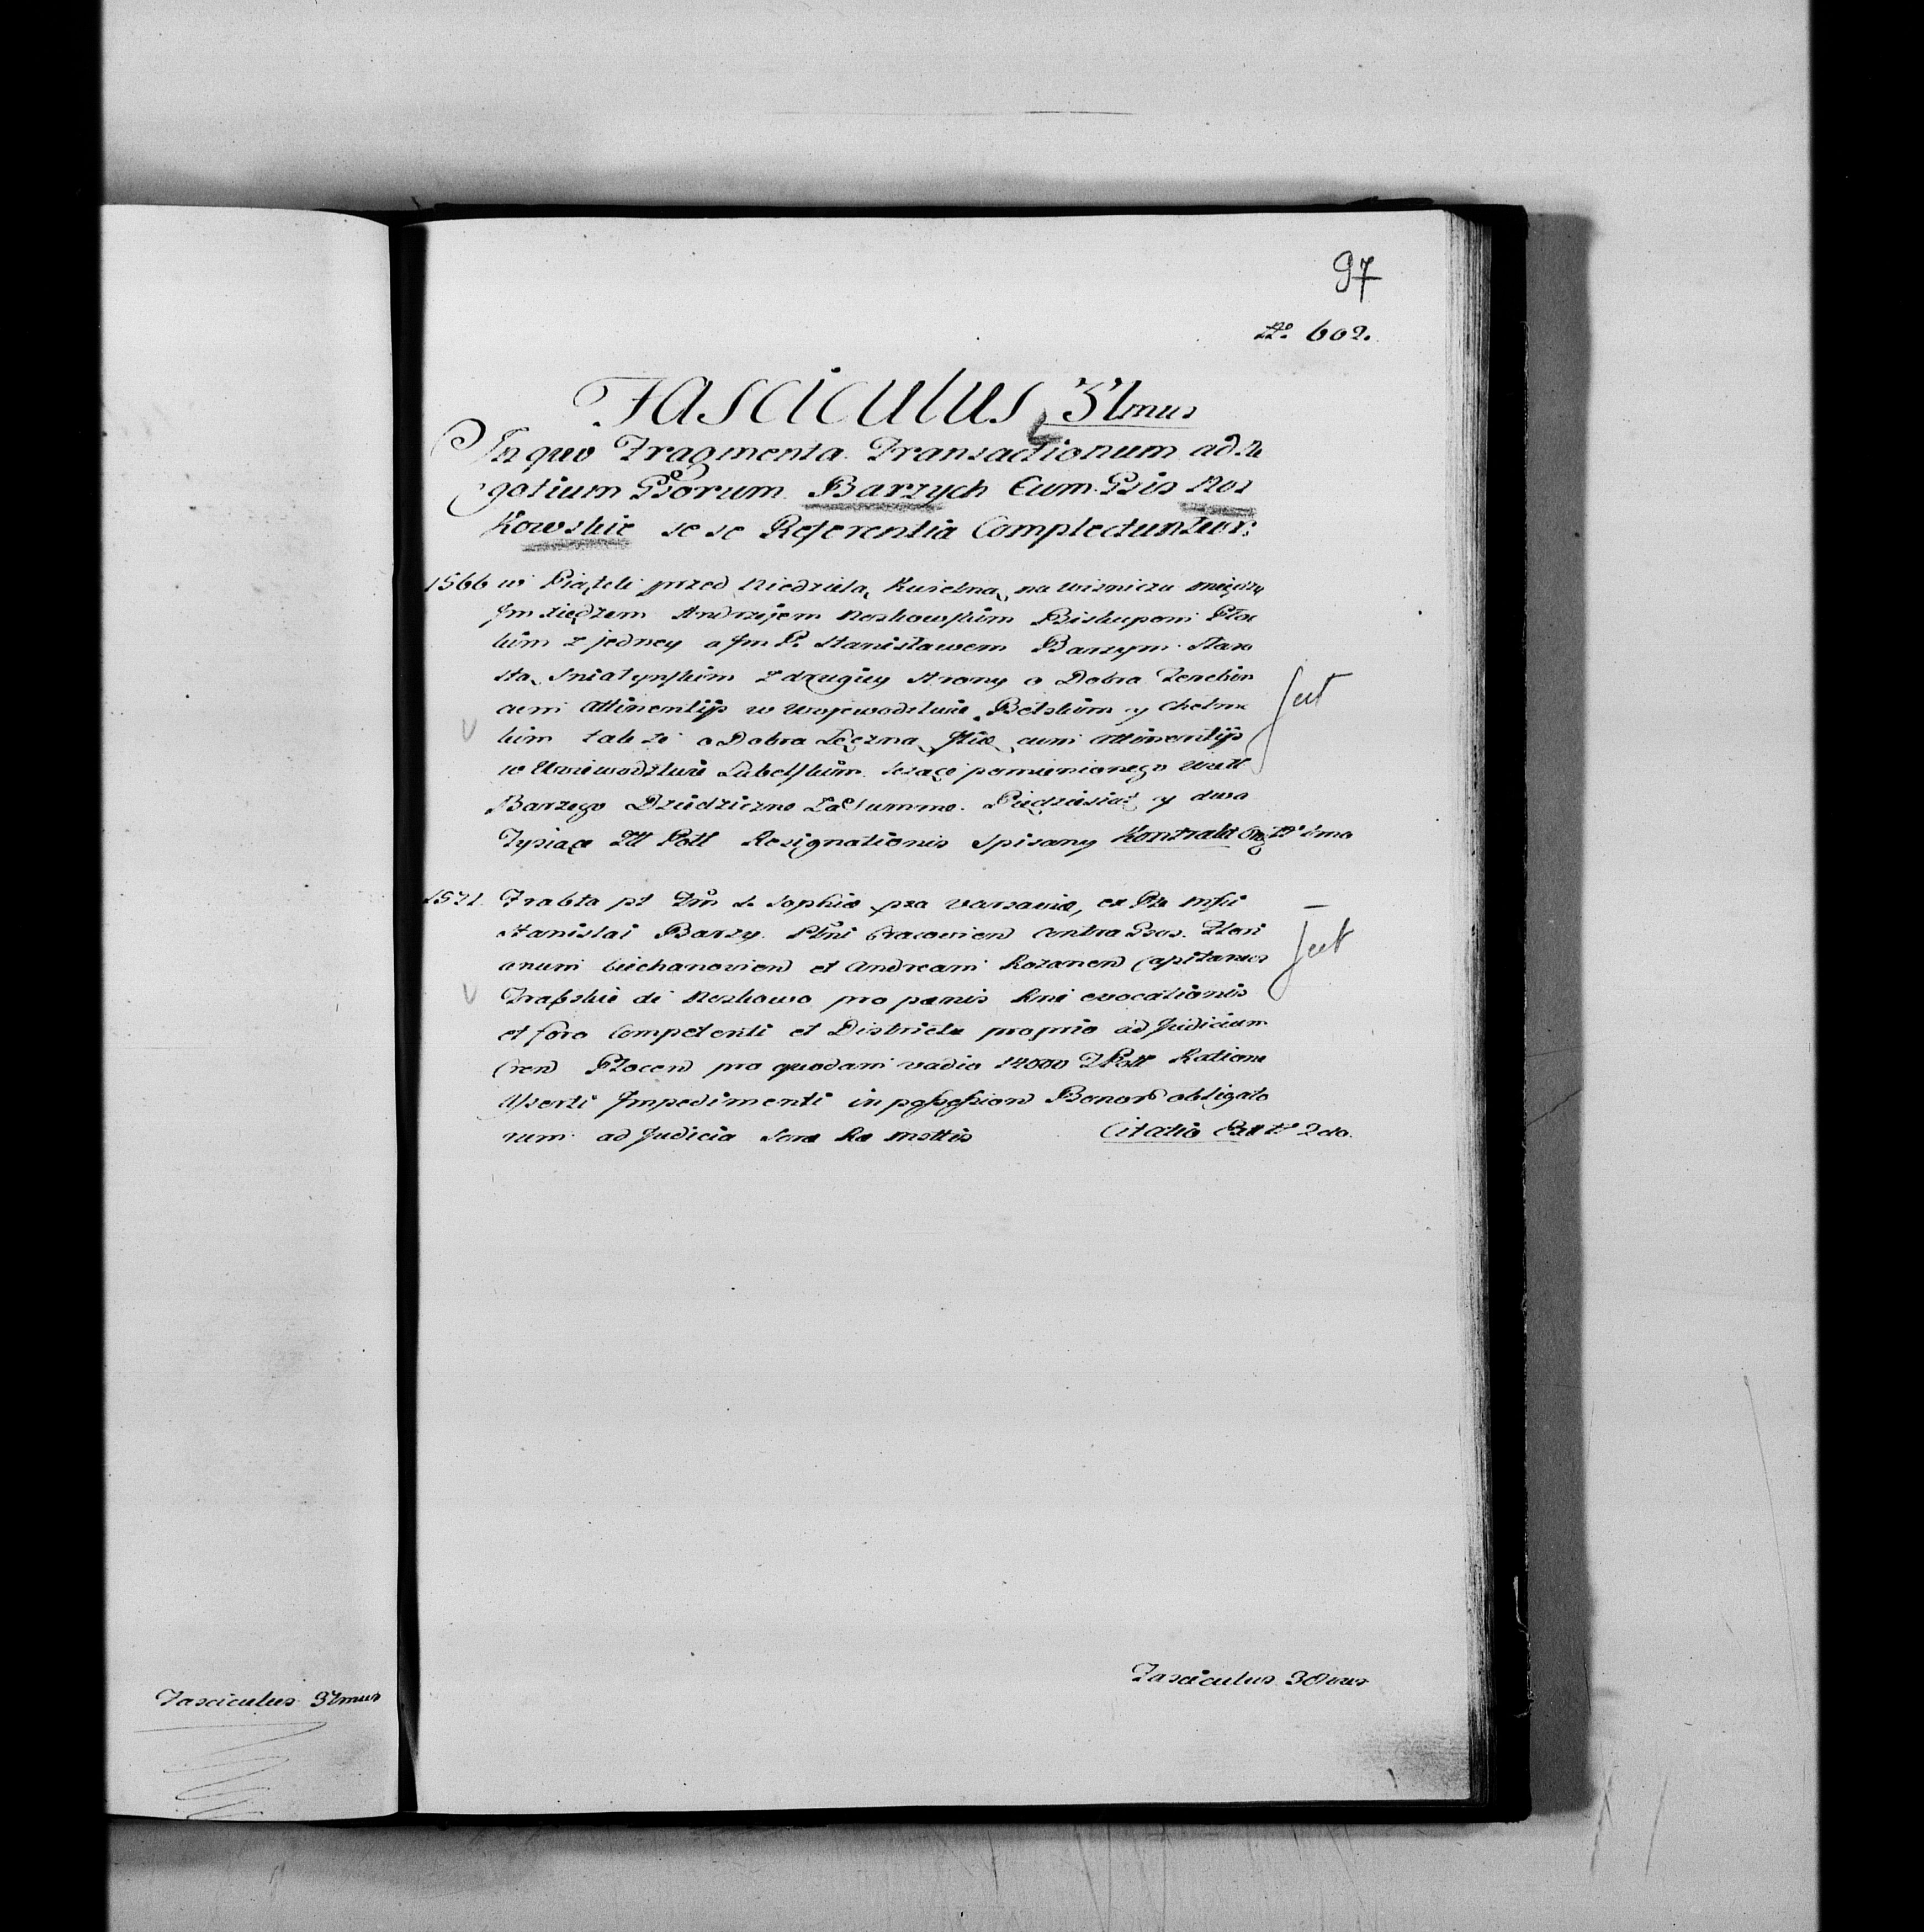 97
No 602.
Fasciculus 37mus
In quo Fragmenta Transactionum ad Ne
gotium Gsorum Barzych Cum Gsis Nos
Kowskie se se Referentia Complectuntur:
1566 w Piątek przed Niedzielą Kwietną na Wiśniczu między
Jm Xiędzem Andrzejem Noskowskim Biskupem Płoc
kim z jedney a Jm P. Stanisławem Barzym Staro
stą Sniatynskim z drugiey strony o Dobra
cum attinentijs w Woiewodztwie Bełskim y Chełm
kim także o Dobra Łęczna cum attinentijs
w Woiewodztwie Lubelskim leżące pomienionego
Barzego Dziedziczne za Summę Pięćdziesiąt y dwa
Tysiące Zll Poll Resignationis spisany Kontrakt Org No 1mo
Sut
1571 Frabta pt Dm S. Sophie pra Varsavie, ex Pte Mfci
Stanislai Barzy Pttni Cracovien contra Gsos Flori
anum Ciechanovien et Andream Rozanen Capitaneos
Fratres de Noskowo pro paenis Rni evocationis
et foro Competenti et Districtu proprio ad Judicium
Cren Plocen pro quodam vadio 14000 Poll Ratione
Asserti Impedimenti in possession Bonor obligato
rum ad Judicia Sera Ra Mattis Citatio No 2do.
Sut
Fasciculus 38vus
Fasciculus 37mus